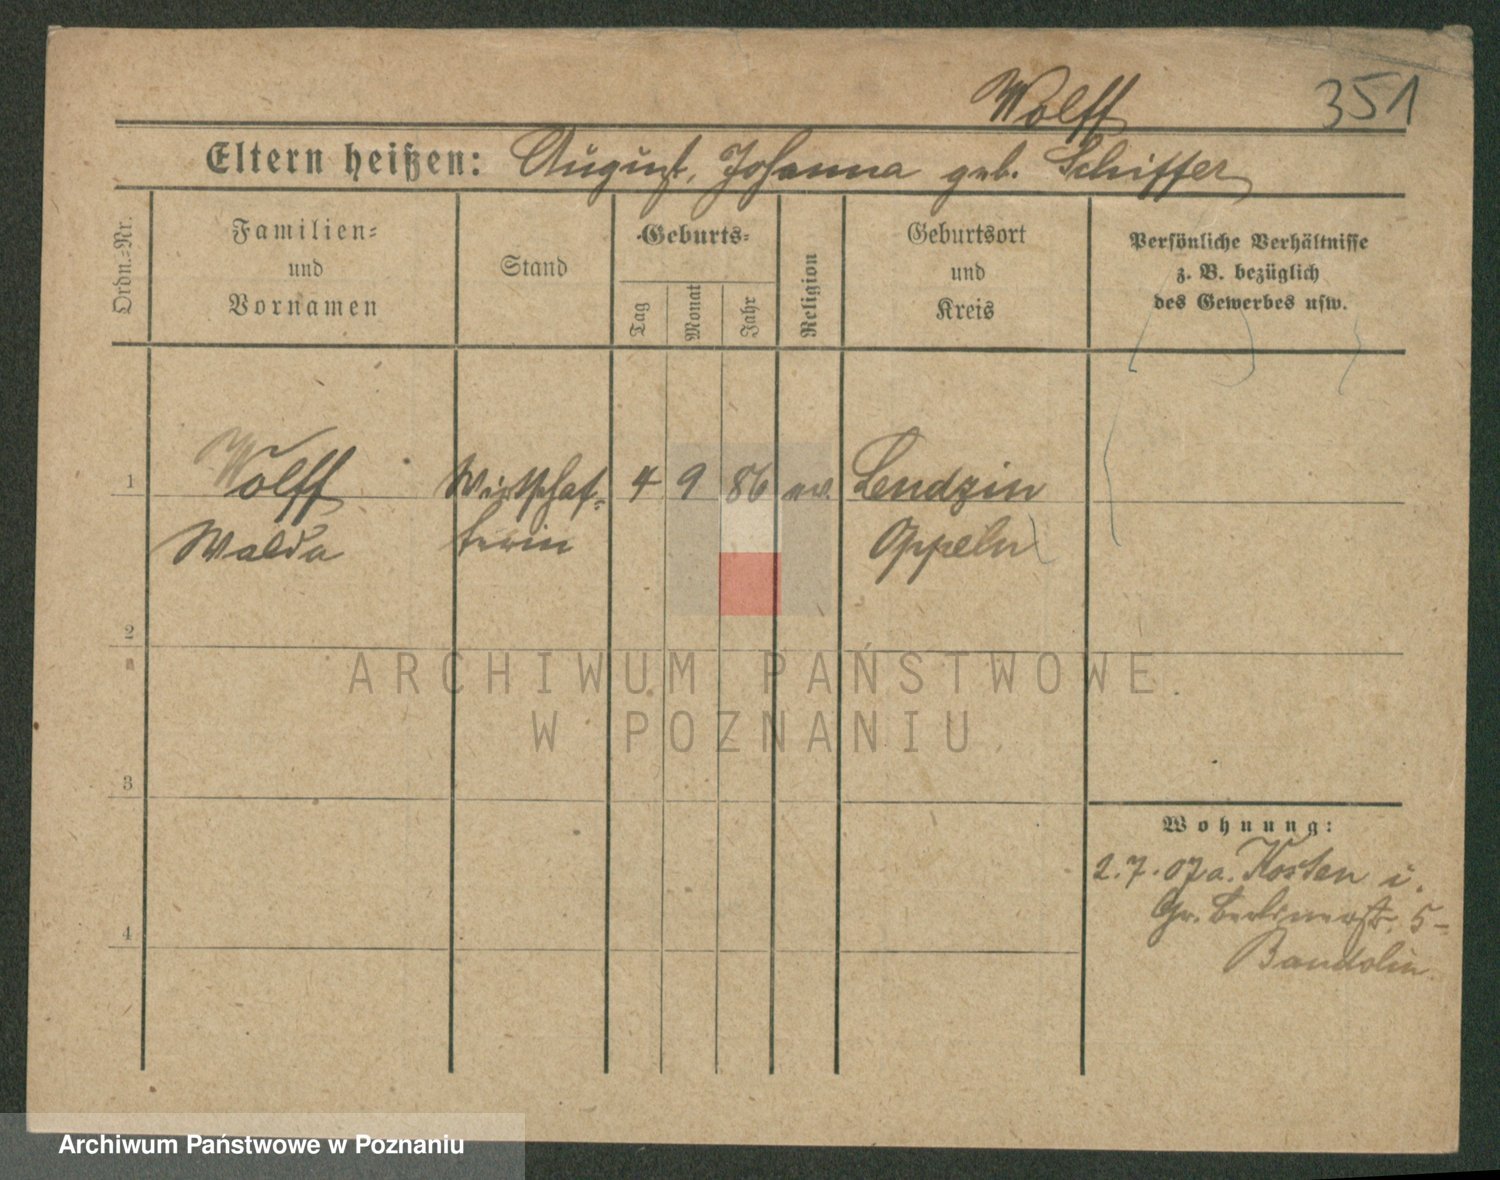 Wolff 351
Eltern heißen: August, Johanna geb. Schiffer
Ordn.-Nr.
Familien-
und
Vornamen
Stand
Geburts-
Tag
Monat
Jahr
Religion
Geburtsort
und
Kreis
Persönliche Verhältnisse
z. B. bezüglich
des Gewerbes usw.
1 Wolff Wirtschaf- 4 9 86 ev. Lendzin
Walda terin Oppeln
2
ARCHIWUM PAŃSTWOWE
W POZNANIU
3
Wohnung:
2.7.07 a. Kosten i.
Gr. Berlinerstr. 5-
4
Bandolin
Archiwum Państwowe w Poznaniu